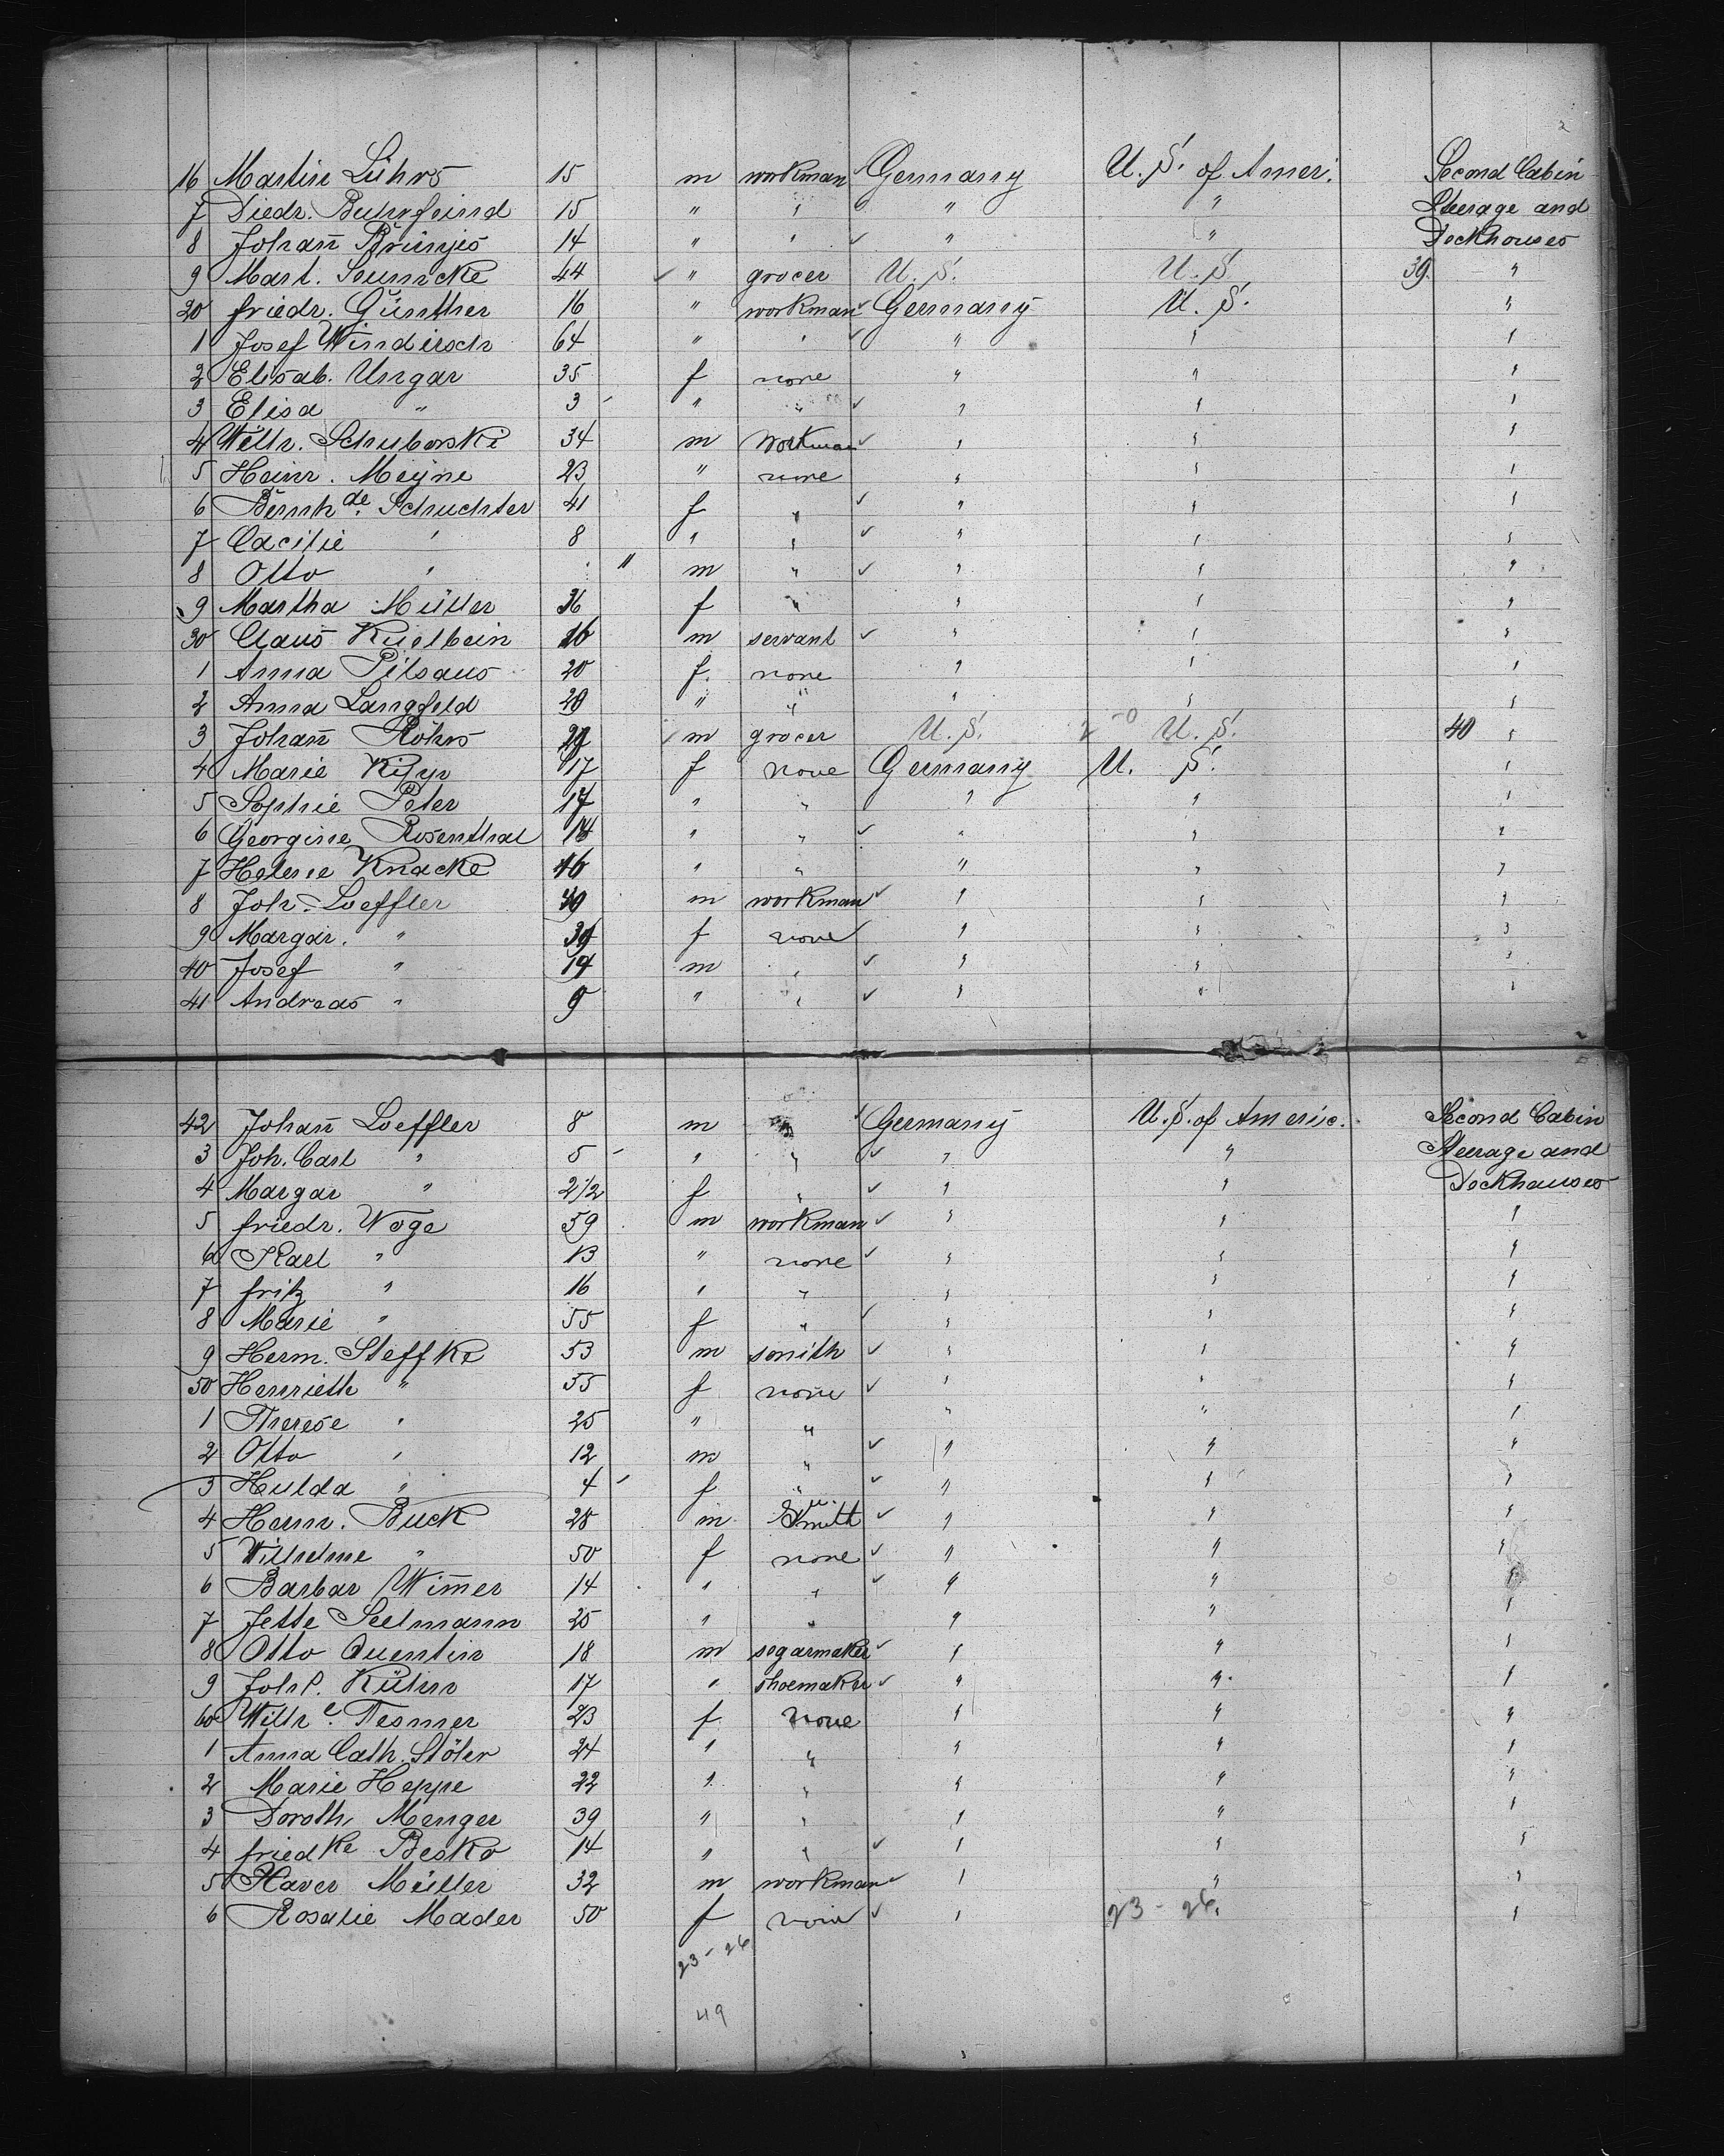 2
16 Martin Lührs 15 m workman Germany U. S. of Amer. Second Cabin
7 Diedr. Buhrfeind 15 " " " " Steerage and
8 Johañ Brünjes 14 " " " " Deckhouses
9 Mart. 44 " grocer U. S. U. S. 39. "
20 friedr. Günther 16 " workman Germany U. S. "
1 Josef Windirsch 64 " " " " "
2 Elisab. Ungar 35 f none " " "
3 Elisa " 3 " " " " "
4 Wilh. Schuborski 34 m workman " " "
5 Heinr. Meyne 23 " none " " "
6 Bernh de. Schuchter 41 f " " " "
7 Cacilie " 8 " " " " "
8 Otto " " m " " " "
9 Martha Müller 36 f " " " "
30 Claus Küelbein 16 m servant " " "
1 Anna Pilsaus 20 f. none " " "
2 Anna Langfeld 20 " " " " "
3 Johañ Röhrs m grocer U. S. U. S. 40 "
4 Marie 17 f none Germany U. S. "
5 Sophie Peter 17 " " " " "
6 Georgine Rosenthal " " " " "
7 Helene Knacke 16 " " " " "
8 Joh. Loeffler m workman " " "
9 Margar. " f none " " "
40 Josef " m " " " "
41 Andreas " 9 " " " " "
42 Johañ Loeffler 8 m " Germany U. S. of Americ. Second Cabin
3 Joh. Carl " 5 " " " " Steerage and
4 Margar " 2 1/2 f " " " Deckhauses
5 friedr. Woge 59 m workman " " "
6 Karl " 13 " none " " "
7 fritz " 16 " " " " "
8 Marie " 55 f " " " "
9 Herm. Steffke 53 m smith " " "
50 Henrieth " 55 f none " " "
1 Therese " 25 " " " " "
2 Otto " 12 m " " " "
3 Hulda " 4 f " " " "
4 Herm. Buck 28 m Smith " " "
5 Wilhelme " 50 f none " " "
6 Barbar Wim̄er 14 " " " " "
7 Jette Seelmann 25 " " " " "
8 Otto Quentin 18 m segarmaker " " "
9 Joh P. Kühn 17 " shoemaker " " "
60 Wilh e. Tesmer 23 f none " " "
1 Anna Cath. Stöter 24 " " " " "
2 Marie Heppe 22 " " " " "
3 Doroth. Menger 39 " " " " "
4 fried ke Besko 14 " " " " "
5 Xaver Müller 32 m workman " " "
6 Rosalie Mader 50 f none " 23 - 26. "
23 - 26
49